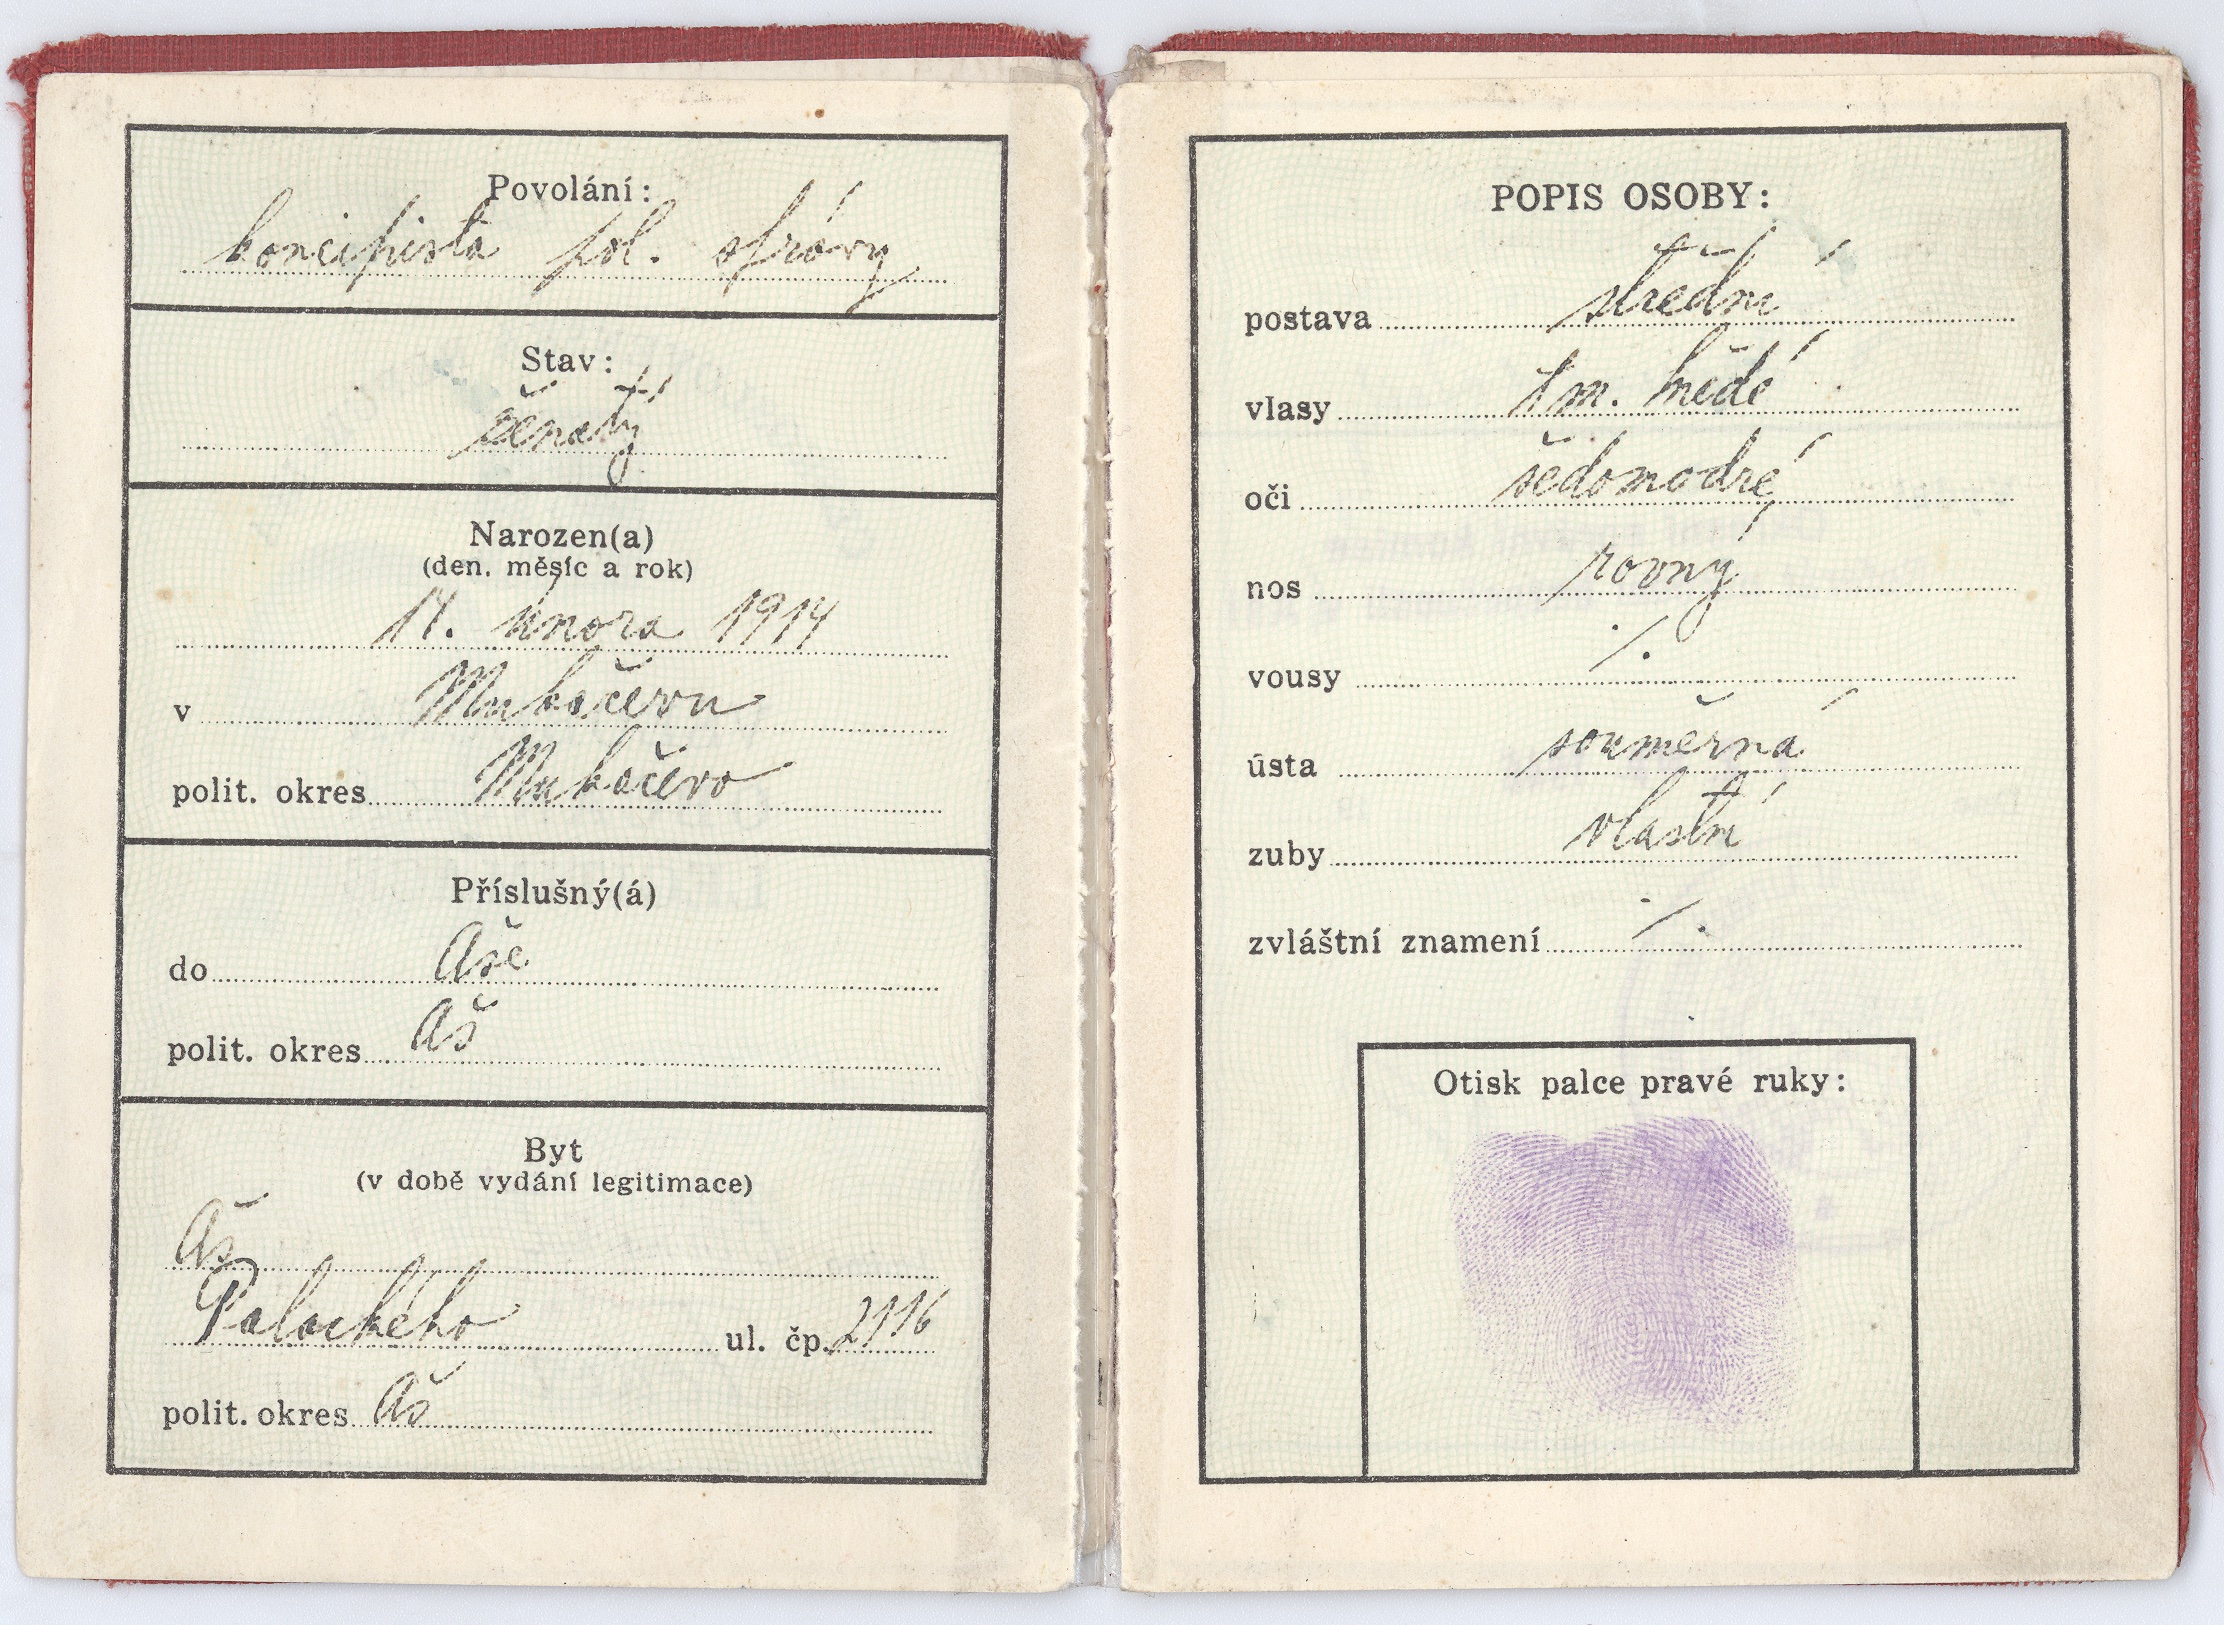 Povolání:
koncipista pol. správy
Stav:
ženatý
Narozen(a)
(den, měsíc a rok)
14. února 1914
v Mukačevu
polit. okres Mukačevo
Příslušný(á)
do Aše
polit. okres Aš
Byt
(v době vydání legitimace)
Aš
Palackého ul. čp. 2116
polit. okres Aš
POPIS OSOBY:
postava střední
vlasy tm. hnědé
oči šedomodré
nos rovný
vousy ./.
ústa souměrná
zuby vlastní
zvláštní znamení ./.
Otisk palce pravé ruky: